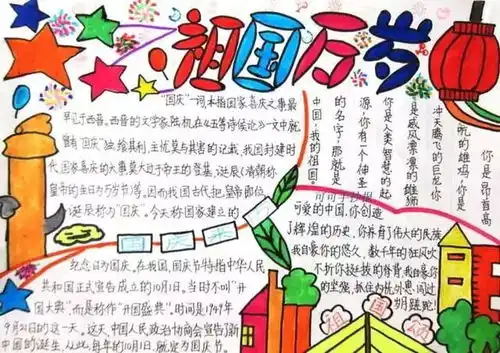 祖国万岁
"国庆"一词,本指国家喜庆之事最
早见于西晋。西晋的文学家陆机在《五等诸侯论》一文中就
曾有"国庆"独飨其利,主忧莫与其害的记载、我国封建时
代、国家喜庆的大事莫大过于帝王的登基、诞辰(清朝称
皇帝的生日为万岁节)等。因而我国古代把皇帝即位、
诞辰称为"国庆"。今天称国家建立的
国庆来
纪念日为国庆。在我国,国庆节特指中华人民
共和国正式宣告成立的10月1日。当时不叫"开
国大典",而是称作"开国盛典"。时间是1949年
9月21日的这一天。这天,中国人民政治协商会宣告了新
中国的诞生。从此,每年的10月1日,就定为国庆节。
你是昂首高
吭的雄鸡,你是
冲天腾飞的巨龙,你
是威风凛凛的雄狮
你是人类智慧的起
源,你有一个神圣
的名字,那就是
中国,我的祖国。
可爱的中国,你创造
了辉煌的历史,你养育了伟大的民族
我自豪你的悠久,数千年的狂风吹
不折你挺拔的脊背,我自豪你
的坚强,抓住
岁月蹉跎!
祖国